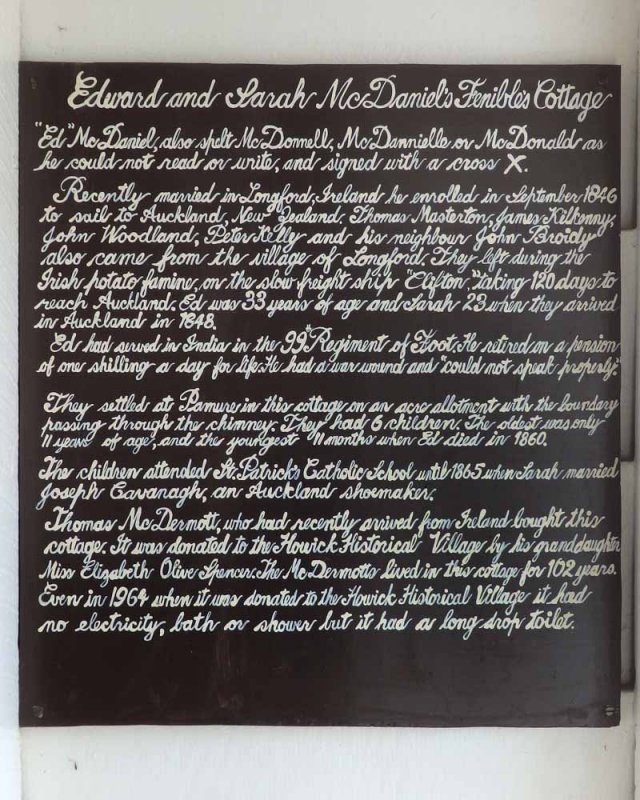 Edward and Sarah McDaniel's Fenible's Cottage
"Ed" McDaniel, also spelt McDonnell, McDannielle or McDonald as
he could not read or write, and signed with a cross X.
Recently married in Longford, Ireland he enrolled in September 1846
to sail to Auckland, New Zealand. Thomas Masterton, James Kilkenny,
John Woodland, Peter Kelly and his neighbour John Broidy
also came from the village of Longford. They left during the
Irish potato famine, on the slow freight ship "Clifton", taking 120 days to
reach Auckland. Ed was 33 years of age and Sarah 23 when they arrived
in Auckland in 1848.
Ed had served in India in the 99th Regiment of Foot. He retired on a pension
of one shilling a day for life. He had a war wound and "could not speak properly."
They settled at Panmure in this cottage on an acre allotment with the boundary
passing through the chimney. They had 6 children. The oldest was only
11 years of age, and the youngest 11 months when Ed died in 1860.
The children attended St. Patrick's Catholic School until 1865 when Sarah married
Joseph Cavanagh, an Auckland shoemaker.
Thomas McDermott, who had recently arrived from Ireland bought this
cottage. It was donated to the Howick Historical Village by his granddaughter
Miss Elizabeth Olive Spencer. The McDermotts lived in this cottage for 102 years.
Even in 1964 when it was donated to the Howick Historical Village it had
no electricity, bath or shower but it had a long drop toilet.